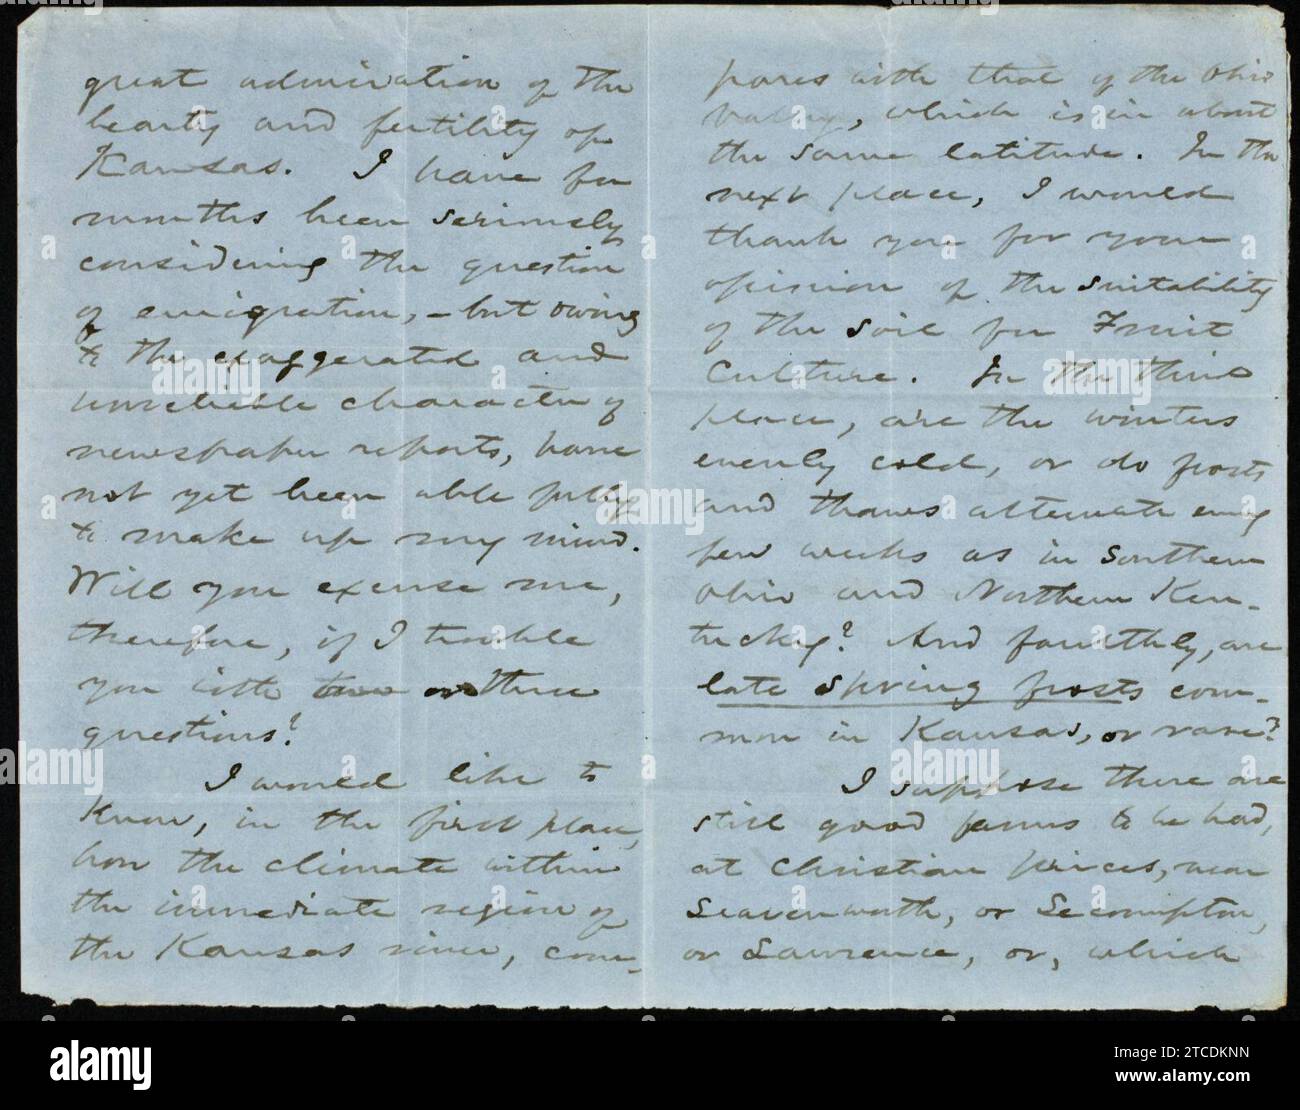 great admiration of the
beauty and fertility of
Kansas. I have for
months been seriously
considering the question
of emigration, - but owing
to the exaggerated and
unreliable character of
newspaper reports, have
not yet been able fully
to make up my mind.
Will you excuse me,
therefore, if I trouble
you with two or three
questions?
I would like to
know, in the first place,
how the climate within
the immediate region of
the Kansas river, com-
pares with that of the Ohio
Valley, which is in about
the same latitude. In the
next place, I would
thank you for your
opinion of the suitability
of the soil for Fruit
Culture. In the third
place, are the winters
evenly cold, or do frosts
and thaws alternate every
few weeks as in Southern
Ohio and Northern Ken-
tucky? And fourthly, are
late spring frosts com-
mon in Kansas, or rare?
I suppose there are
still good farms to be had,
at Christian prices, near
Leavenworth, or Lecompton,
or Lawrence, or, which
alamy
Image ID: 2TCDKNN
www.alamy.com